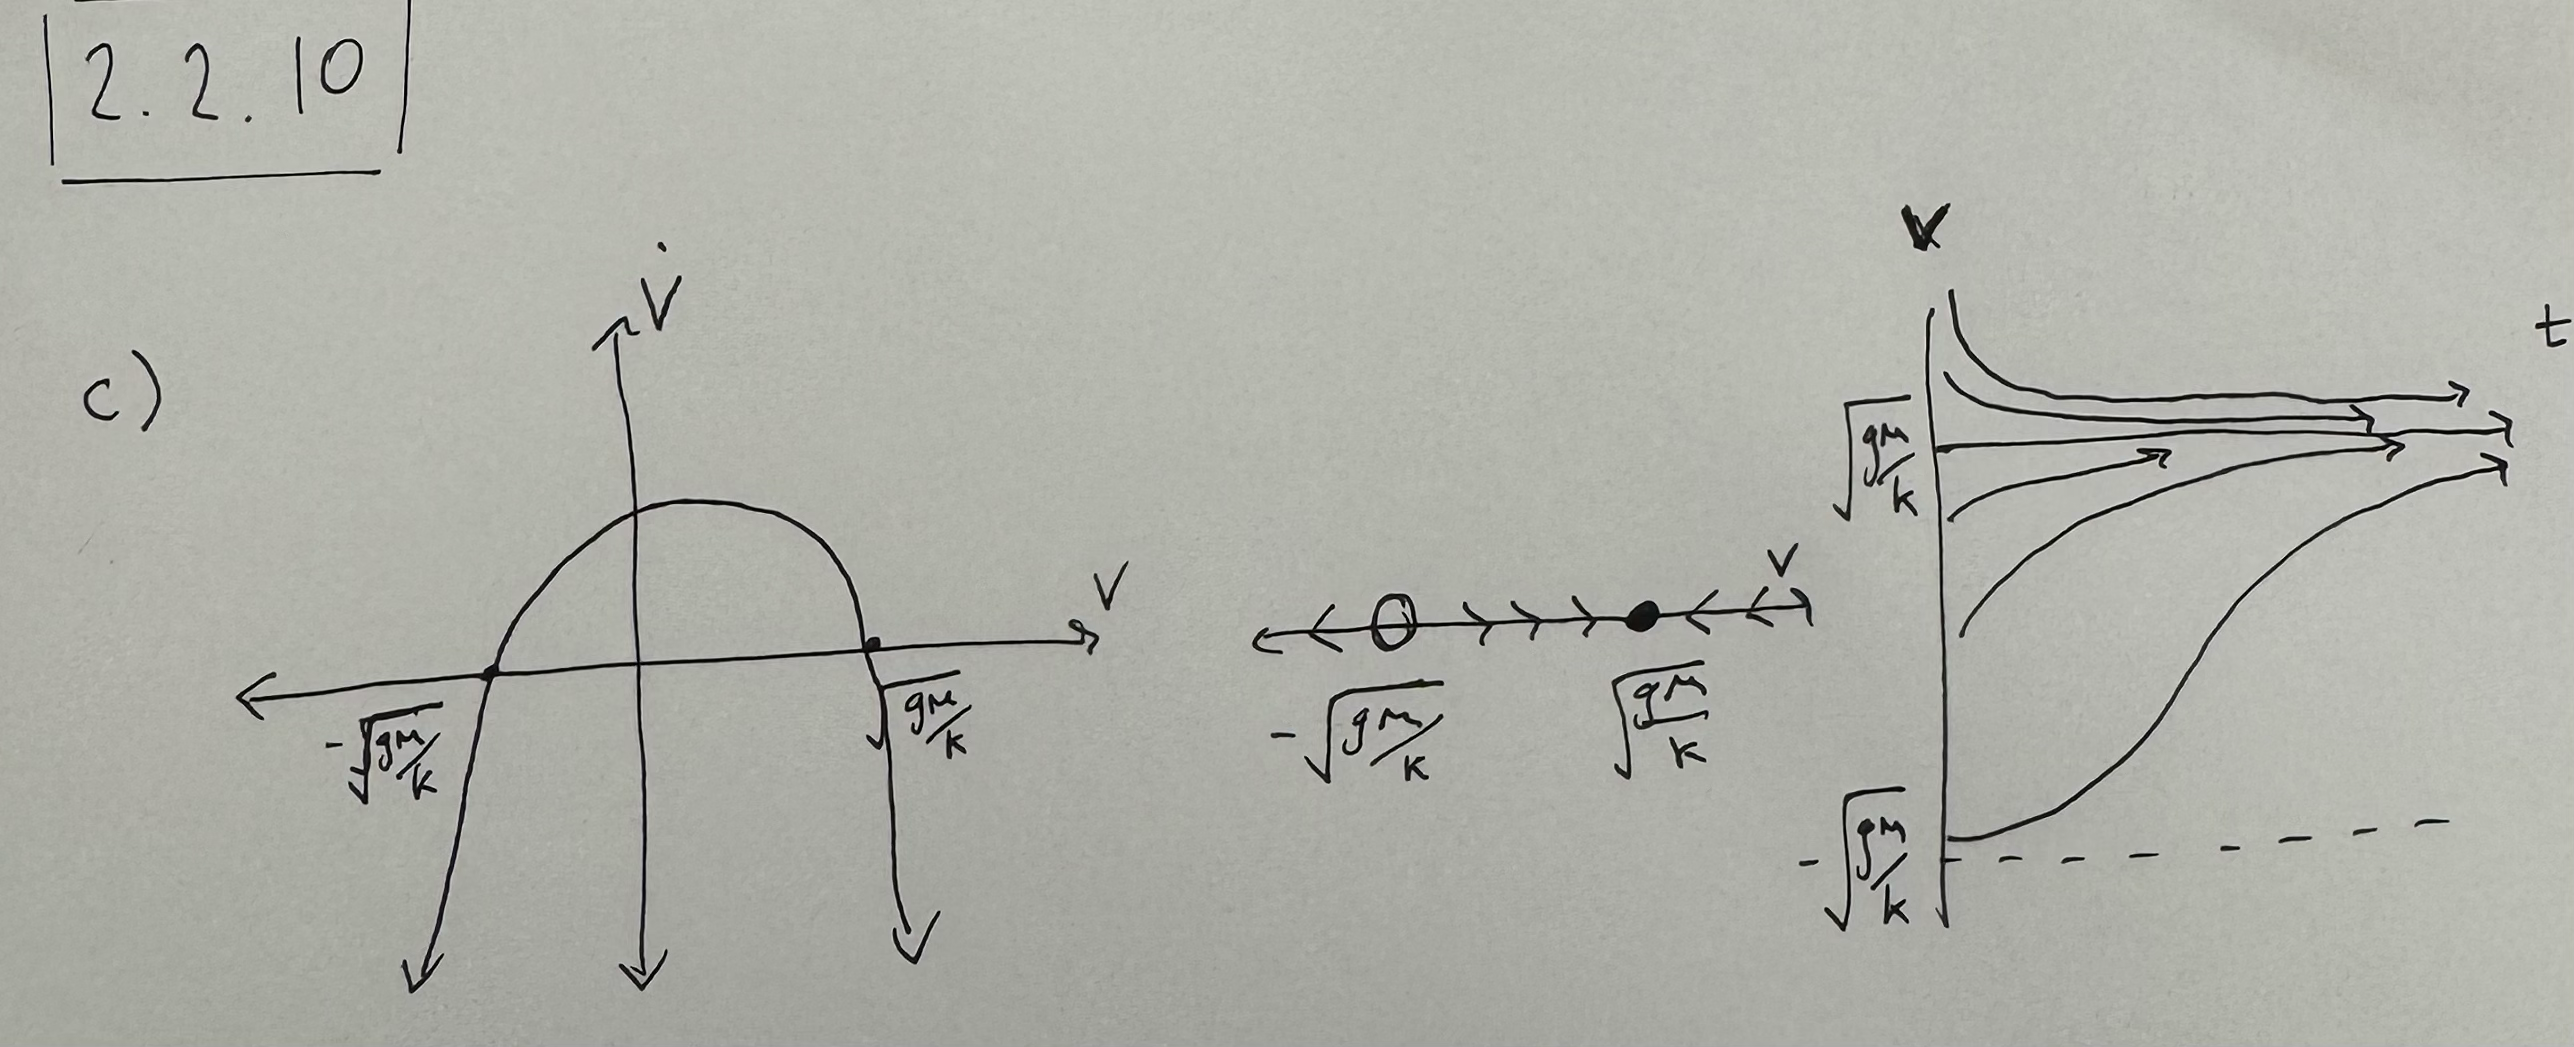 2.2.10
c)
V̇
V
-√gm/k
√gm/k
V
-√gm/k
√gm/k
V
t
√gm/k
-√gm/k